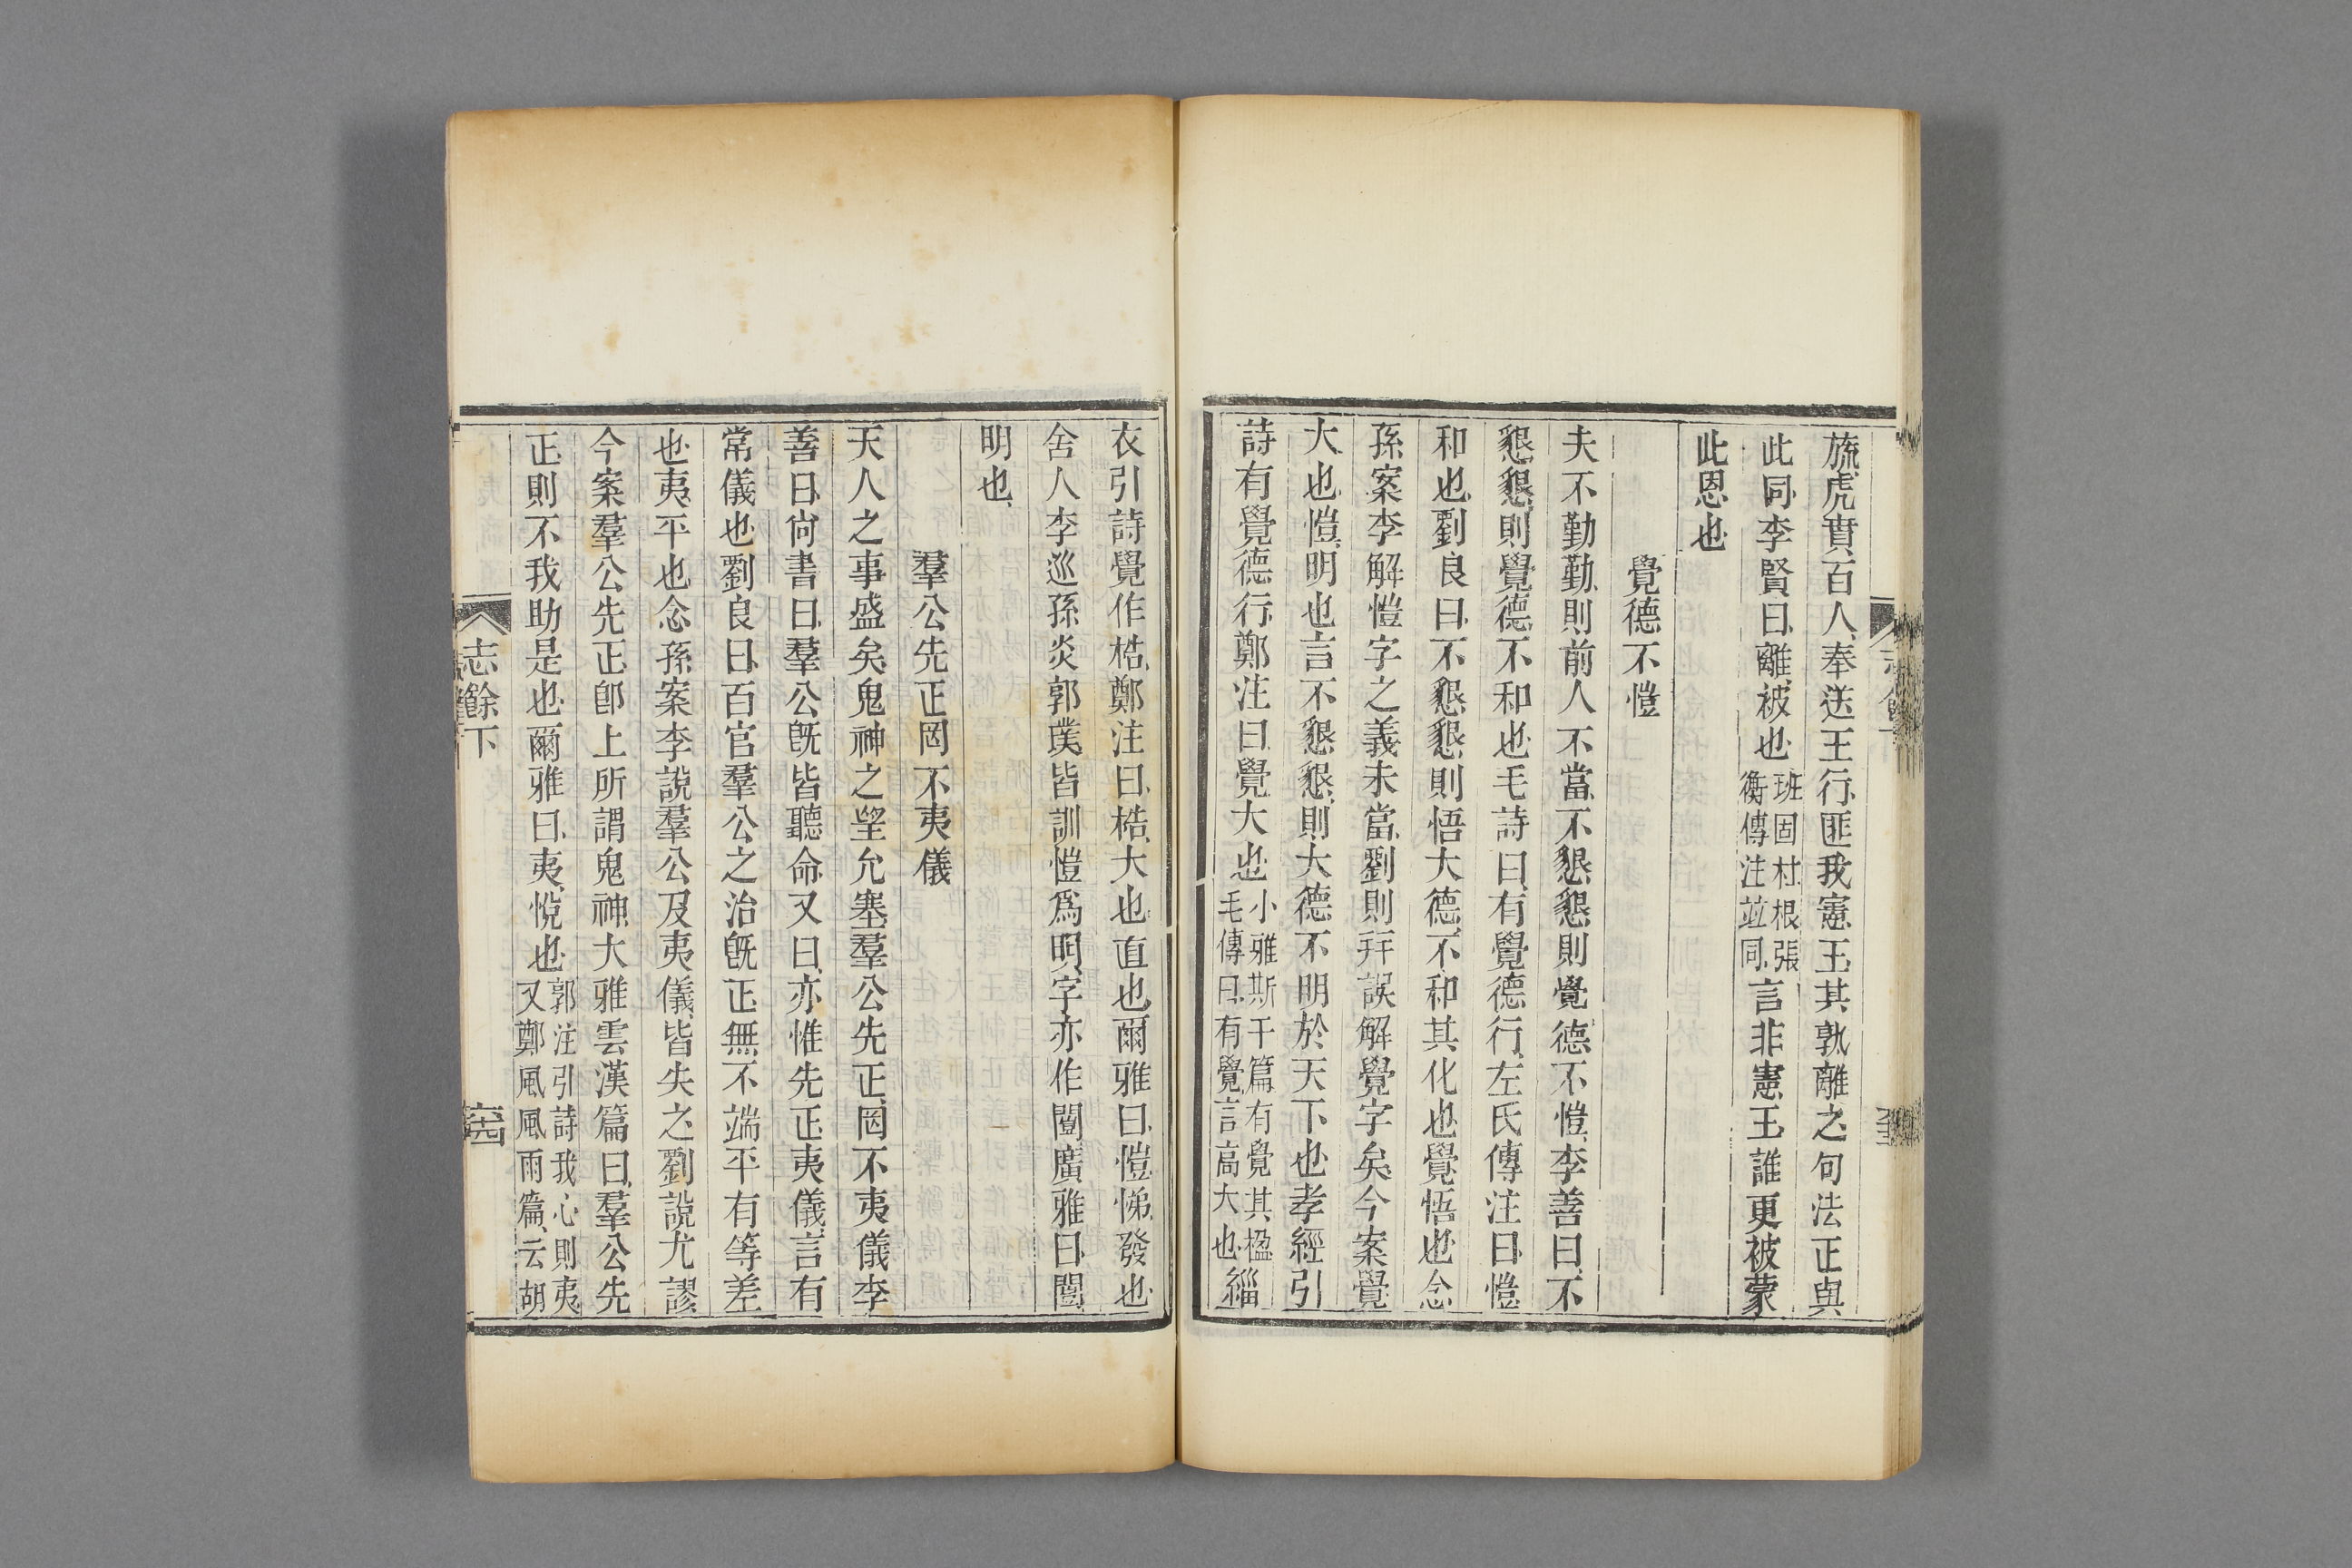 旒虎賁百人奉送王行匪我憲王其孰離之句法正與
此同李賢曰離被也班固杜根張衡傳注竝同言非憲王誰更被蒙
此恩也
覺德不愷
夫不勤勤則前人不當不懇懇則覺德不愷李善曰不
懇懇則覺德不和也毛詩曰有覺德行左氏傳注曰愷
和也劉良曰不懇懇則悟大德不和其化也覺悟也念
孫案李解愷字之義未當劉則幷誤解覺字矣今案覺
大也愷明也言不懇懇則大德不明於天下也孝經引
詩有覺德行鄭注曰覺大也小雅斯干篇有覺其楹毛傳曰有覺言高大也緇
衣引詩覺作梏鄭注曰梏大也直也爾雅曰愷悌發也
舍人李巡孫炎郭璞皆訓愷爲明字亦作闓廣雅曰闓
明也
羣公先正罔不夷儀
天人之事盛矣鬼神之望允塞羣公先正罔不夷儀李
善曰尙書曰羣公旣皆聽命又曰亦惟先正夷儀言有
常儀也劉良曰百官羣公之治旣正無不端平有等差
也夷平也念孫案李說羣公及夷儀皆失之劉說尤謬
今案羣公先正卽上所謂鬼神大雅雲漢篇曰羣公先
正則不我助是也爾雅曰夷悅也郭注引詩我心則夷又鄭風風雨篇云胡
志餘下